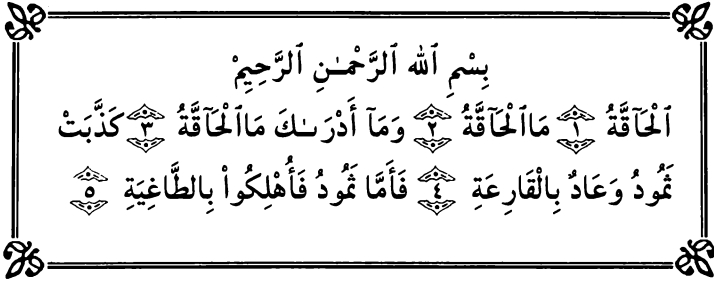 بِسْمِ ٱللَّهِ ٱلرَّحْمَـٰنِ ٱلرَّحِيمْ
ٱلْحَآقَّةُ ١ مَاٱلْحَآقَّةُ ٢ وَمَآ أَدْرَىٰكَ مَاٱلْحَآقَّةُ ٣ كَذَّبَتْ
ثَمُودُ وَعَادٌ بِالْقَارِعَةِ ٤ فَأَمَّا ثَمُودُ فَأُهْلِكُوا۟ بِالطَّاغِيَةِ ٥